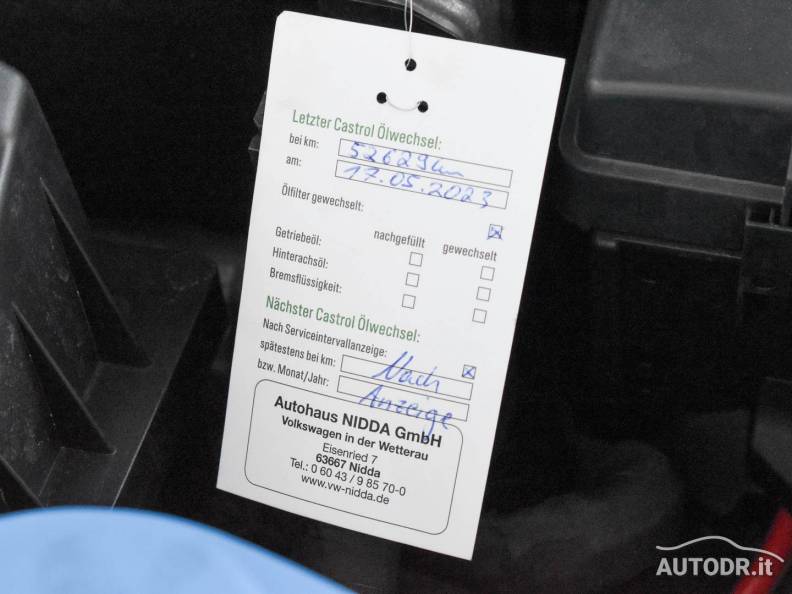 Letzter Castrol Ölwechsel:
bei km: 52629 km
am: 17.05.2023
Ölfilter gewechselt:
nachgefüllt gewechselt
Getriebeöl:
Hinterachsöl:
Bremsflüssigkeit:
Nächster Castrol Ölwechsel:
Nach Serviceintervallanzeige:
spätestens bei km: Nach
bzw. Monat/Jahr: Anzeige
Autohaus NIDDA GmbH
Volkswagen in der Wetterau
Eisenried 7
63667 Nidda
Tel.: 0 60 43 / 9 85 70-0
www.vw-nidda.de
AUTODR.it